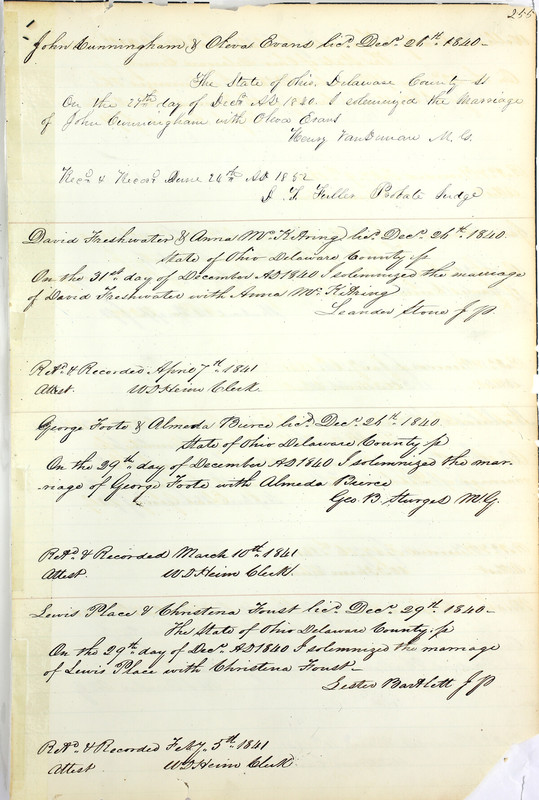 255
John Cunningham & Oliva Evans lic'd Dec'r 26th 1840-
The State of Ohio, Delaware County ss
On the 27th day of Dec'r AD 1840. I solemnized the Marriage
of John Cunningham with Oliva Evans
Henry VanDeman M. G.
Rec'd & Record June 24th AD 1852
Fuller Probate Judge
David Freshwater & Anna McKitring lic'd Dec'r 26th 1840
State of Ohio Delaware County ss
On the 31st day of December AD 1840 I solemnized the marriage
of David Freshwater with Anna McKitring
Leander Stone J P
Ret'd & Recorded April 7th 1841
Attest. W D Heim Clerk
George Foote & Almeda Pierce lic'd Dec'r 26th 1840
State of Ohio Delaware County ss
On the 29th day of December AD 1840 I solemnized the mar-
riage of George Foote with Almeda Pierce
Geo. B. Sturges M G.
Ret'd & Recorded March 10th 1841
Attest. W D Heim Clerk.
Lewis Place & Christena Foust lic'd Dec'r 29th 1840-
The State of Ohio Delaware County, ss
On the 29th day of Dec'r AD 1840 I solemnized the marriage
of Lewis Place with Christena Foust-
Lester Bartlett J P
Ret'd & Recorded Feb'y 5th 1841
Attest W D Heim Clerk.